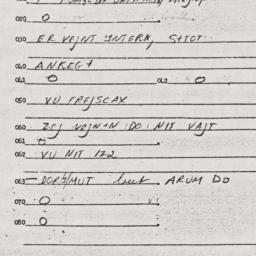 020 O
030 ER VEJNT INTERN, STOT
040 ANREG+
041 O 042 O
050 VU FREJSCAX
060 ZEJ VEJN+N DO. NIT VAJT
061 O
062 VU NIT IZ2
063 DORS/MUT but ARUM DO
070 O
080 O